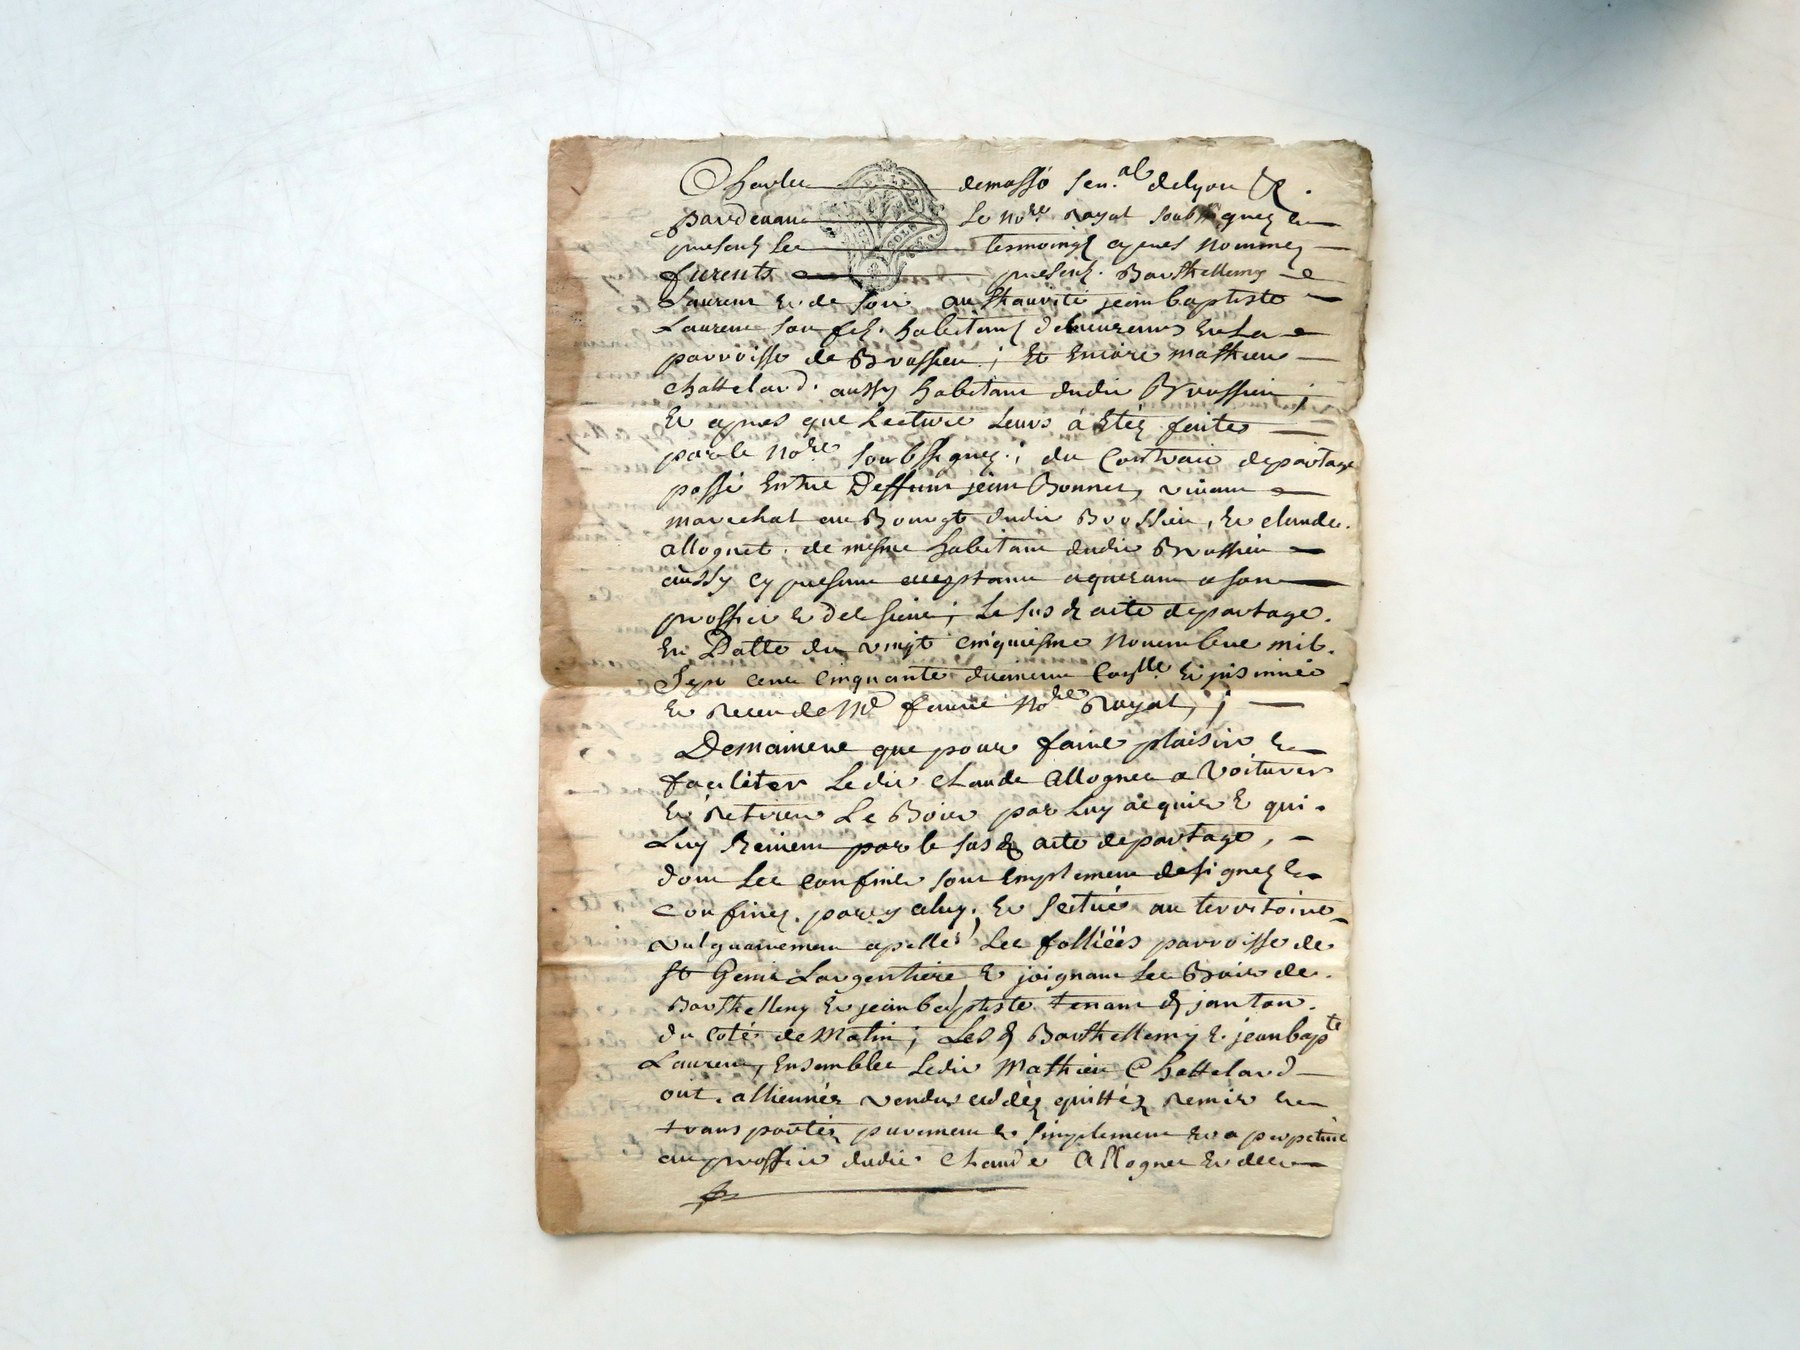 Charles demasso sen.al delyon &.
pardevant Le no.re Royal soubsignez et
presents les tesmoings apres nommez
furents presents. Barthellemy
Laurent et de son authorité jean baptiste
Laurent son fils. habitants demeurants en La
parroisse de Brussieu; Et Encore mathieu
chattelard. aussy habitant dudit Brussieu;
Et apres que Lecture Leurs à Etéz faites
par le no.re soubssignez; du Contrait departage
passé Entre Deffunt jean Bonnet, vivant
marechal au Bourgt dudit Brussieu, Et claude.
allognet. de mesme habitant dudit Brussieu
aussy cy present acceptant aquerant a son
proffict et des siens; Le susd acte departage.
En Datte du vingt cinquiesme novembre mil.
Sept cent Cinquante Con.lle Et jnsinué
Et Receu de M.e no.re Royal;
Demainere que pour faire plaisir et
faciliter Ledit claude allognet a voiturer
Et Retirer Le Bois par Luy acquis et qui.
Luy Revient par le susd acte departage,
dont Les confins sont Emplement designez et
confinez. par y celuy. Et scitué au territoire
vulguairement apellés Les folliëës parroisse de
St Genis Largentiere, Et joignant Les Bois de.
Barthellemy Et jean baptiste
du coté de Matin; Lesd Barthellemy et. jean bap.te
Laurent, Ensembles Ledit Mathieu Chattelard
ont. alliennés vendus ceddéz quittéz Remis et
transportéz purement et simplement Et a perpetuité
au proffict dudit claude allognet Et des